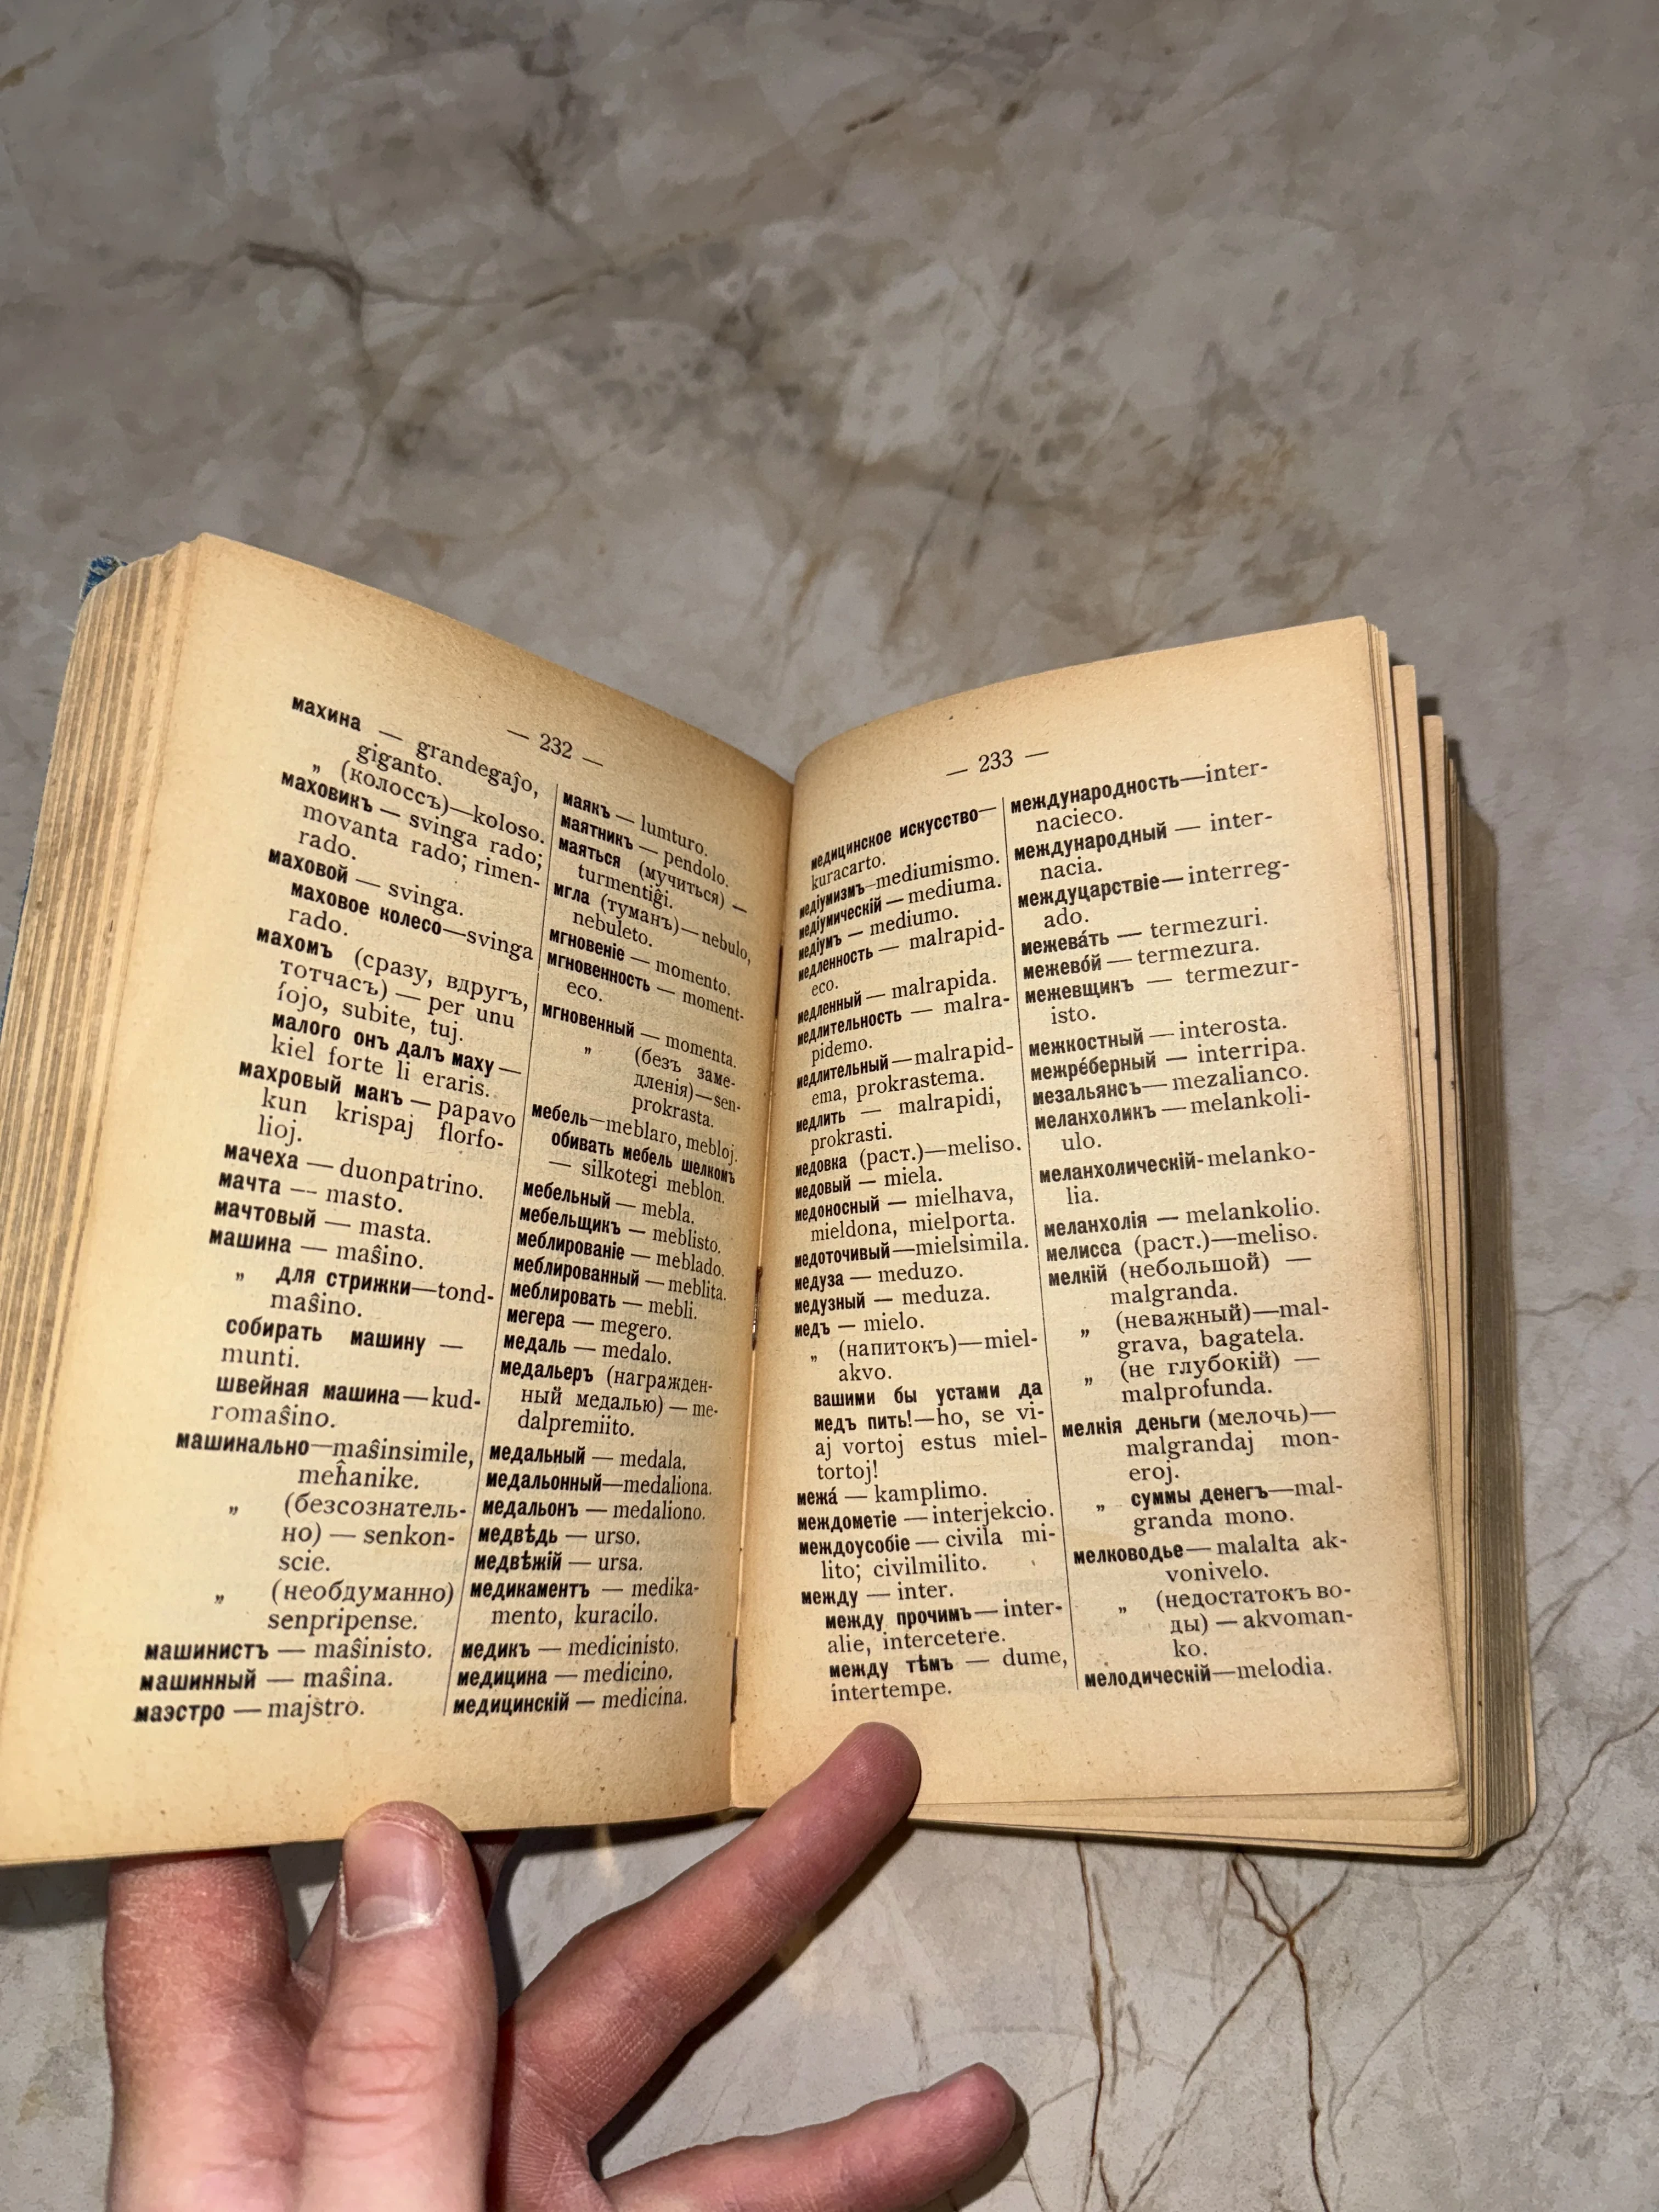 — 232 —
махина — grandegaĵo,
giganto.
„ (колоссъ)—koloso.
маховикъ — svinga rado;
movanta rado; rimen-
rado.
маховой — svinga.
маховое колесо—svinga
rado.
махомъ (сразу, вдругъ,
тотчасъ) — per unu
fojo, subite, tuj.
малого онъ далъ маху —
kiel forte li eraris.
махровый макъ — papavo
kun krispaj florfo-
lioj.
мачеха — duonpatrino.
мачта — masto.
мачтовый — masta.
машина — maŝino.
„ для стрижки—tond-
maŝino.
собирать машину —
munti.
швейная машина—kud-
romaŝino.
машинально—maŝinsimile,
meĥanike.
„ (безсознатель-
но) — senkon-
scie.
„ (необдуманно)
senpripense.
машинистъ — maŝinisto.
машинный — maŝina.
маэстро — majstro.
маякъ — lumturo.
маятникъ — pendolo.
маяться (мучиться) —
turmentiĝi.
мгла (туманъ)—nebulo,
nebuleto.
мгновеніе — momento.
мгновенность — moment-
eco.
мгновенный — momenta.
„ (безъ заме-
дленія)—sen-
prokrasta.
мебель—meblaro, mebloj.
обивать мебель шелкомъ
— silkotegi meblon.
мебельный — mebla.
мебельщикъ — meblisto.
меблированіе — meblado.
меблированный — meblita.
меблировать — mebli.
мегера — megero.
медаль — medalo.
медальеръ (награжден-
ный медалью) — me-
dalpremiito.
медальный — medala.
медальонный—medaliona.
медальонъ — medaliono.
медвѣдь — urso.
медвѣжій — ursa.
медикаментъ — medika-
mento, kuracilo.
медикъ — medicinisto.
медицина — medicino.
медицинскій — medicina.
— 233 —
медицинское искусство—
kuracarto.
медіумизмъ—mediumismo.
медіумическій — mediuma.
медіумъ — mediumo.
медленность — malrapid-
eco.
медленный — malrapida.
медлительность — malra-
pidemo.
медлительный—malrapid-
ema, prokrastema.
медлить — malrapidi,
prokrasti.
медовка (раст.)—meliso.
медовый — miela.
медоносный — mielhava,
mieldona, mielporta.
медоточивый—mielsimila.
медуза — meduzo.
медузный — meduza.
медъ — mielo.
„ (напитокъ)—miel-
akvo.
вашими бы устами да
медъ пить!—ho, se vi-
aj vortoj estus miel-
tortoj!
межа́ — kamplimo.
междометіе — interjekcio.
междоусобіе — civila mi-
lito; civilmilito.
между — inter.
между прочимъ— inter-
alie, intercetere.
между тѣмъ — dume,
intertempe.
международность—inter-
nacieco.
международный — inter-
nacia.
междуцарствіе—interreg-
ado.
межева́ть — termezuri.
межево́й — termezura.
межевщикъ — termezur-
isto.
межкостный — interosta.
межре́берный — interripa.
мезальянсъ— mezalianco.
меланхоликъ — melankoli-
ulo.
меланхолическій-melanko-
lia.
меланхолія — melankolio.
мелисса (раст.)—meliso.
мелкій (небольшой) —
malgranda.
„ (неважный)—mal-
grava, bagatela.
„ (не глубокій) —
malprofunda.
мелкія деньги (мелочь)—
malgrandaj mon-
eroj.
„ суммы денегъ—mal-
granda mono.
мелководье— malalta ak-
vonivelo.
„ (недостатокъ во-
ды) — akvoman-
ko.
мелодическій—melodia.